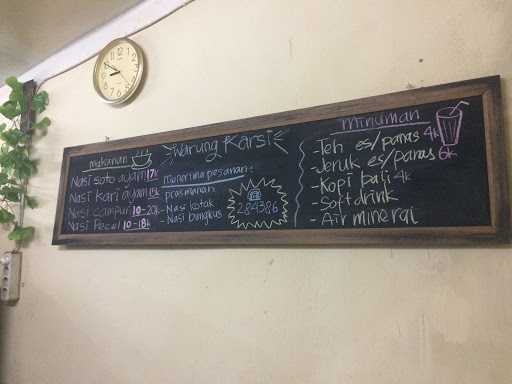 Warung Karsi
makanan
Nasi soto ayam 17k
Nasi Kari ayam 15k
Nasi campur 10-20k
Nasi Pecel 10-18k
menerima pesanan:
prasmanan
- Nasi kotak
- Nasi bungkus
284386
minuman
- Teh es/panas 4k
- Jeruk es/panas 6k
- Kopi bali 4k
- Soft drink
- Air mineral